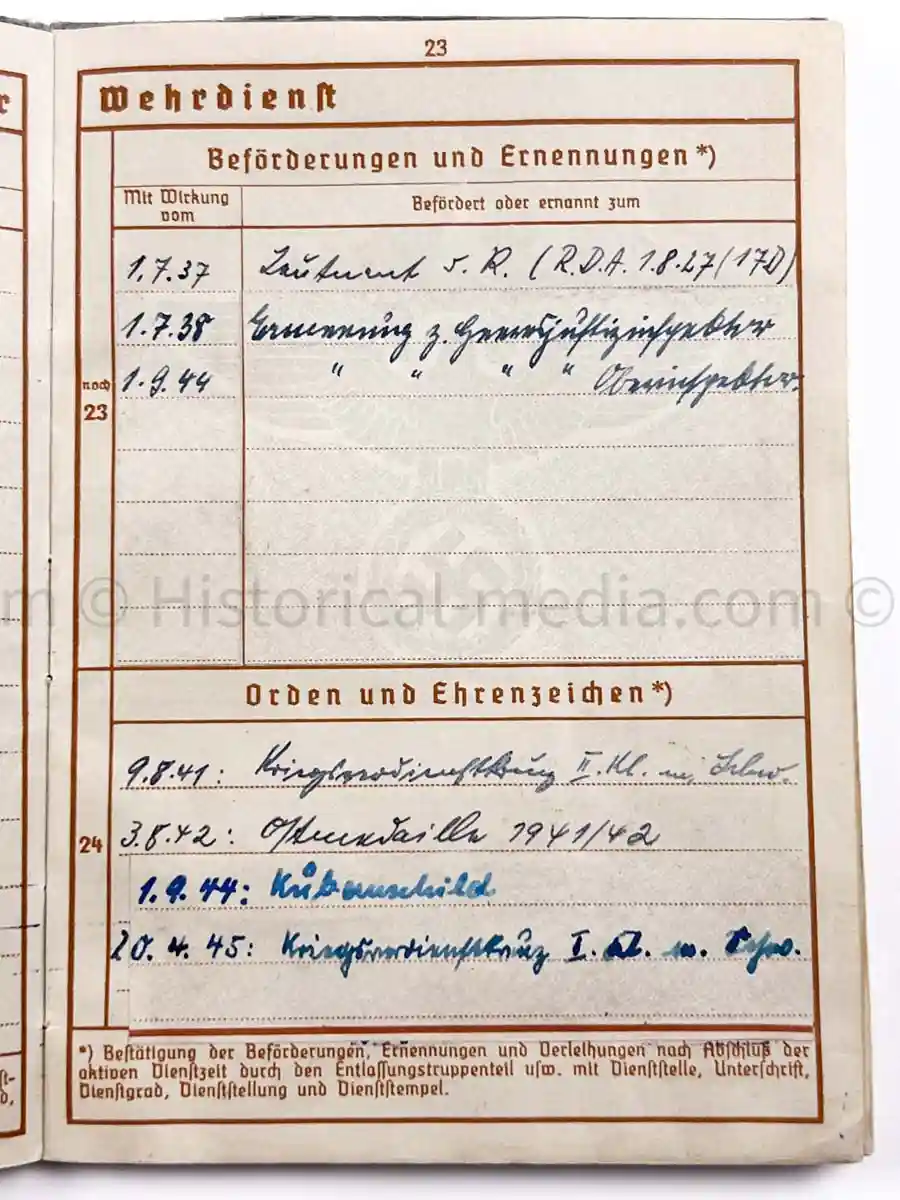 23
r
Wehrdienst
Beförderungen und Ernennungen *)
Mit Wirkung
vom
Befördert oder ernannt zum
1.7.37 Leutnant d. R. (R.D.A. 1.8.27 (170)
1.7.38 Ernennung z. Heeresjustizinspektor
noch
23
1.9.44 " " " " Oberinspektor.
m © Historical-media.com ©
Orden und Ehrenzeichen *)
24
9.8.41: Kriegsverdienstkreuz II. Kl. m. Schw.
3.8.42: Ostmedaille 1941/42
1.9.44: Kubanschild
20.4.45: Kriegsverdienstkreuz I. Kl. m. Schw.
*) Bestätigung der Beförderungen, Ernennungen und Verleihungen nach Abschluß der
aktiven Dienstzeit durch den Entlassungstruppenteil usw. mit Dienststelle, Unterschrift,
Dienstgrad, Dienststellung und Dienststempel.